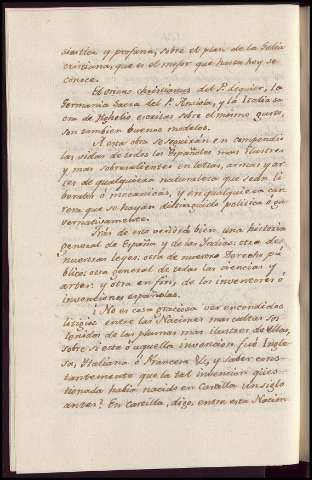 siastica y profana, sobre el plan de la Galia
cristiana, que es el mejor que hasta hoy se
conoce.
El Oriens christianus del P. Lequien, la
Germania Sacra del P. Ansizio, y la Italia sa
cra de Ughelio escritas sobre el mismo gusto,
son tambien buenos modelos.
A esta obra se seguirán en compendio
las vidas de todos los Españoles mas ilustres
y mas sobresalientes en letras, armas y ar
tes de qualquiera naturaleza que sean li
berales ó mecanicas, y en qualquiera car
rera que se hayan distinguido politica ó gu
bernativamente.
Trás de esto vendrá bien una historia
general de España y de las Indias: otra de
nuestras leyes: otra de nuestro Derecho pú
blico: otra general de todas las ciencias y
artes: y otra en fin, de los inventores ó
invenciones españolas.
¿No es cosa graciosa ver encendidos
litigios entre las Naciones mas cultas sos
tenidos de las plumas mas ilustres de ellas,
sobre si esta ó aquella invencion fué Ingle
sa, Italiana ó Francesa &c, y saber cons
tantemente que la tal invencion qües
tionada habia nacido en Castilla un siglo
antes? En Castilla, digo, entre esta Nacion